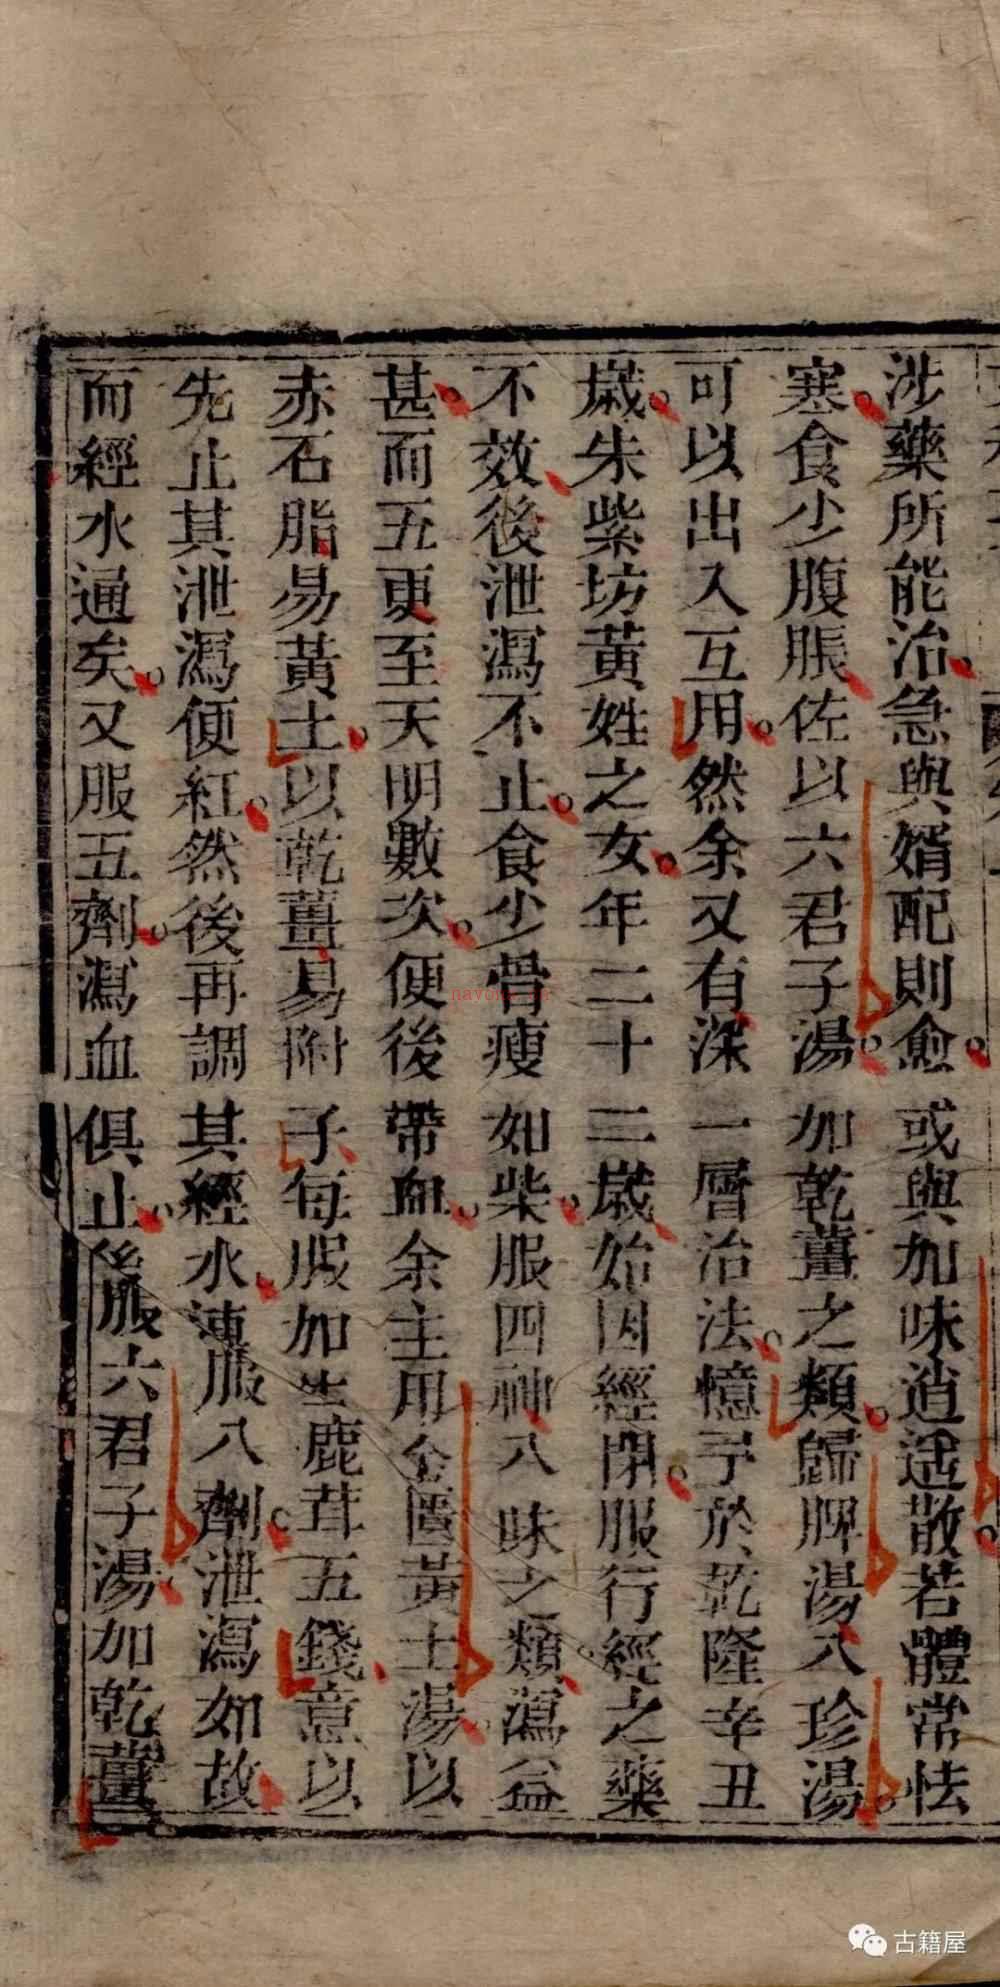 涉藥所能治急與婿配則愈或與加味逍遥散若體常怯
寒食少腹脹佐以六君子湯加乾薑之類歸脾湯八珍湯
可以出入互用然余又有深一層治法憶予於乾隆辛丑
歲朱紫坊黃姓之女年二十二歲始因經閉服行經之藥
不效後泄瀉不止食少骨瘦如柴服四神八味之類瀉益
甚而五更至天明數次便後帶血余主用金匱黃土湯以
赤石脂易黃土以乾薑易附子每服加生鹿茸五錢意以
先止其泄瀉便紅然後再調其經水連服八劑泄瀉如故
而經水通矣又服五劑瀉血俱止後服六君子湯加乾薑
navo
古籍屋